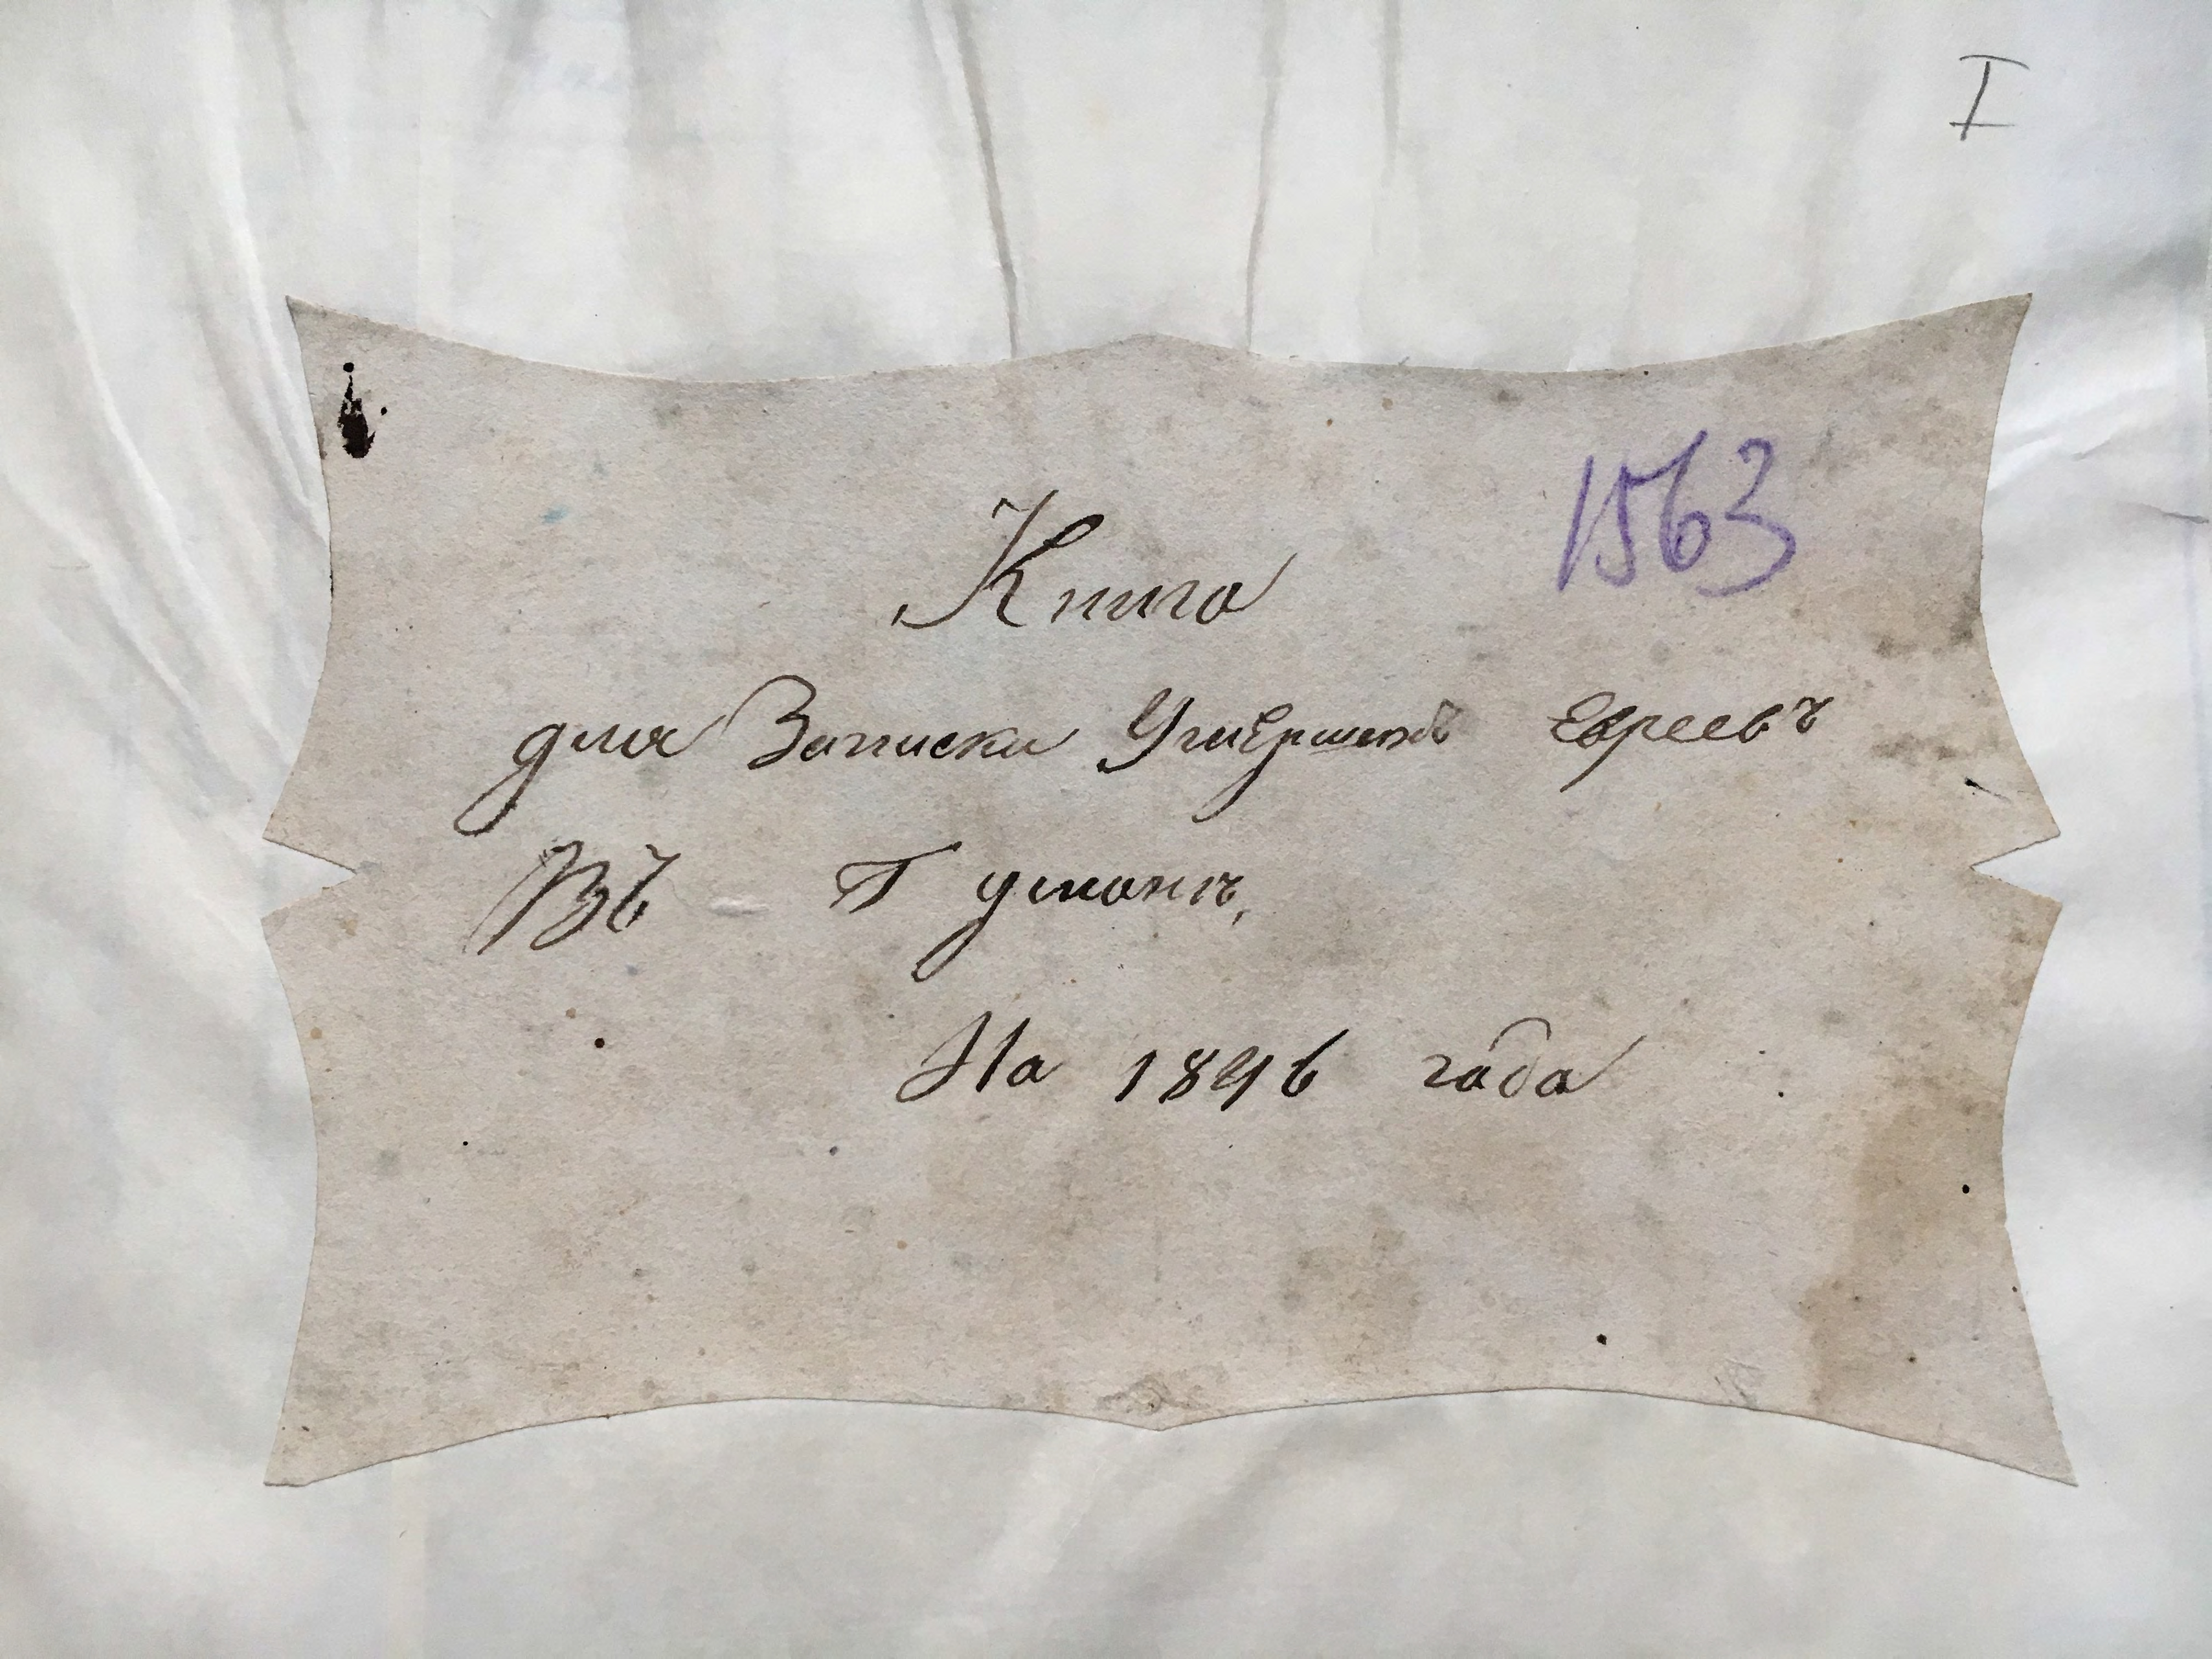 I
1563
Книга
для Записки Умершихъ Евреевъ
Въ Г Умань,
На 1846 года